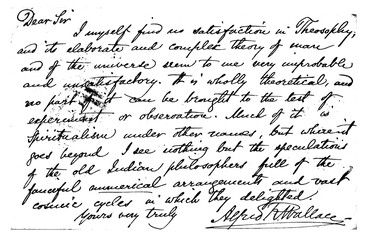 Dear Sir
I myself find no satisfaction in Theosophy,
and its elaborate and complex theory of man
and of the universe seem to me very improbable
and unsatisfactory. It is wholly theoretical, and
no part of it can be brought to the test of
experiment or observation. Much of it is
Spiritualism under other names, but where it
goes beyond I see nothing but the speculations
of the old Indian philosophers full of the
fanciful numerical arrangements and vast
cosmic cycles in which they delighted.
Yours very truly
Alfred R Wallace